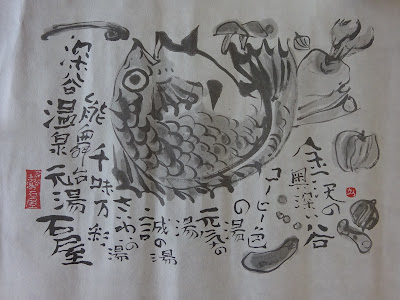 金沢の
奥深い谷
コーヒー色
の湯
元気の
湯
誠の湯
の湯
千味万彩
能舞台
深谷温泉元湯石屋